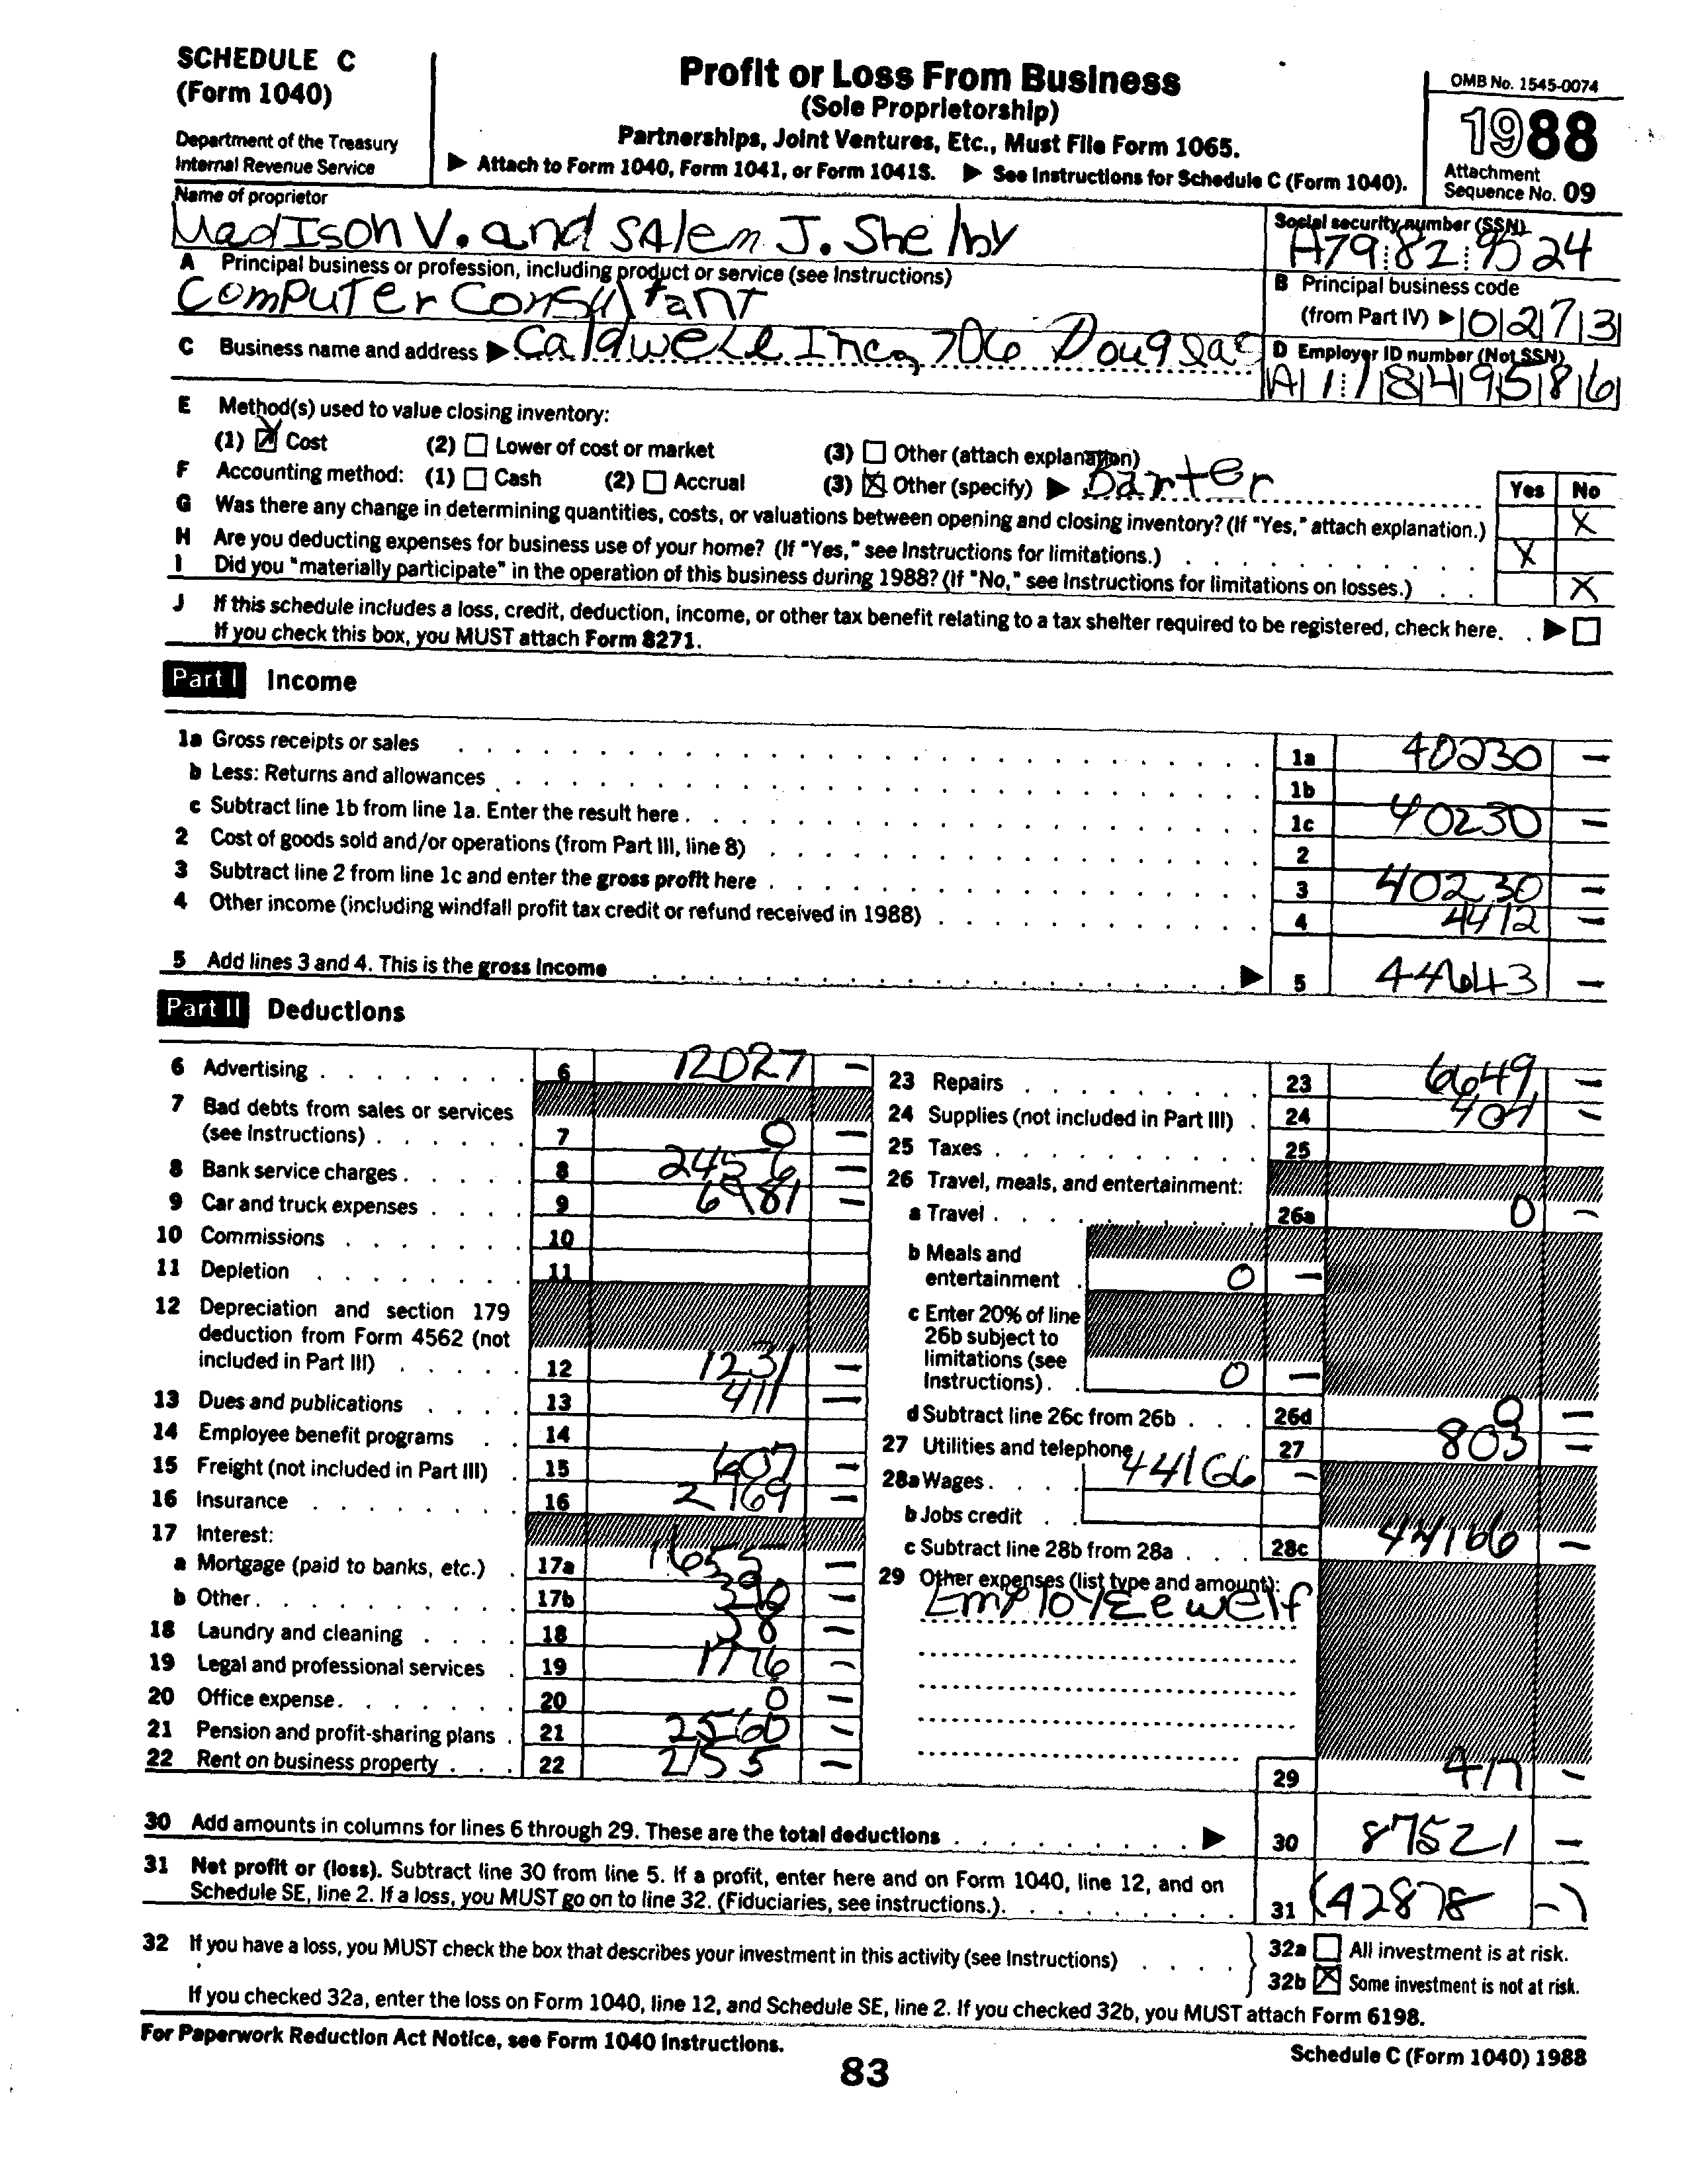 SCHEDULE C
(Form 1040)
Department of the Treasury
Internal Revenue Service
Profit or Loss From Business
(Sole Proprietorship)
Partnerships, Joint Ventures, Etc., Must File Form 1065.
▶ Attach to Form 1040, Form 1041, or Form 1041S. ▶ See Instructions for Schedule C (Form 1040).
OMB No. 1545-0074
1988
Attachment
Sequence No. 09
Name of proprietor
Madison V. and Salem J. Shelby
Social security number (SSN)
A79 82 9524
A Principal business or profession, including product or service (see Instructions)
Computer Consultant
B Principal business code
(from Part IV) ▶ 0 2 7 3
C Business name and address ▶ Caldwell Inc, 706 Douglas
D Employer ID number (Not SSN)
A 1 1 8 4 9 5 8 6
E Method(s) used to value closing inventory:
(1) ☒ Cost (2) ☐ Lower of cost or market (3) ☐ Other (attach explanation)
F Accounting method: (1) ☐ Cash (2) ☐ Accrual (3) ☒ Other (specify) ▶ Barter
Yes No
G Was there any change in determining quantities, costs, or valuations between opening and closing inventory? (If "Yes," attach explanation.) X
H Are you deducting expenses for business use of your home? (If "Yes," see Instructions for limitations.) X
I Did you "materially participate" in the operation of this business during 1988? (If "No," see Instructions for limitations on losses.) X
J If this schedule includes a loss, credit, deduction, income, or other tax benefit relating to a tax shelter required to be registered, check here. ▶ ☐
If you check this box, you MUST attach Form 8271.
Part I Income
1a Gross receipts or sales 1a 40230 —
b Less: Returns and allowances 1b
c Subtract line 1b from line 1a. Enter the result here 1c 40230 —
2 Cost of goods sold and/or operations (from Part III, line 8) 2
3 Subtract line 2 from line 1c and enter the gross profit here 3 40230 —
4 Other income (including windfall profit tax credit or refund received in 1988) 4 4412 —
5 Add lines 3 and 4. This is the gross income ▶ 5 44643 —
Part II Deductions
6 Advertising 6 12027 —
7 Bad debts from sales or services
(see Instructions) 7 0 —
8 Bank service charges 8 2456 —
9 Car and truck expenses 9 6981 —
10 Commissions 10
11 Depletion 11
12 Depreciation and section 179
deduction from Form 4562 (not
included in Part III) 12 1231 —
13 Dues and publications 13 411 —
14 Employee benefit programs 14
15 Freight (not included in Part III) 15 607 —
16 Insurance 16 2969 —
17 Interest:
a Mortgage (paid to banks, etc.) 17a 1655 —
b Other 17b —
18 Laundry and cleaning 18 38 —
19 Legal and professional services 19 1776 —
20 Office expense 20 0 —
21 Pension and profit-sharing plans 21 2560 —
22 Rent on business property 22 2155 —
23 Repairs 23 6649 —
24 Supplies (not included in Part III) 24 404 —
25 Taxes 25
26 Travel, meals, and entertainment:
a Travel 26a 0 —
b Meals and
entertainment 0 —
c Enter 20% of line
26b subject to
limitations (see
Instructions) 0 —
d Subtract line 26c from 26b 26d 0 —
27 Utilities and telephone 27 803 —
28a Wages 44166 —
b Jobs credit
c Subtract line 28b from 28a 28c 44166 —
29 Other expenses (list type and amount):
Employee welf
29 417 —
30 Add amounts in columns for lines 6 through 29. These are the total deductions ▶ 30 87521 —
31 Net profit or (loss). Subtract line 30 from line 5. If a profit, enter here and on Form 1040, line 12, and on
Schedule SE, line 2. If a loss, you MUST go on to line 32. (Fiduciaries, see instructions.) 31 (42878 —)
32 If you have a loss, you MUST check the box that describes your investment in this activity (see Instructions)
32a ☐ All investment is at risk.
32b ☒ Some investment is not at risk.
If you checked 32a, enter the loss on Form 1040, line 12, and Schedule SE, line 2. If you checked 32b, you MUST attach Form 6198.
For Paperwork Reduction Act Notice, see Form 1040 Instructions.
Schedule C (Form 1040) 1988
83